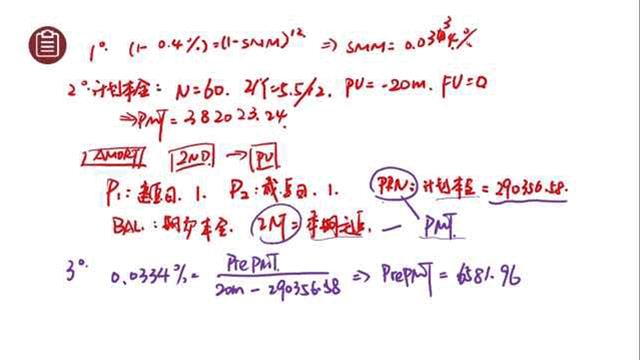 1°. (1-0.4%)=(1-SMM)^12 ⇒ SMM=0.0334%
2°.计划本金: N=60. I/Y=5.5/12. PV=-20m. FU=0
⇒PMT=382023.24.
AMORT 2ND → PV
P1: 起点日. 1. P2: 截点日. 1. PRN: 计划本金 = 290356.58.
BAL: 期末本金. INT = 本期利息. — PMT.
3°. 0.0334%= PrePMT / 20m - 290356.58 ⇒ PrePMT = 6581.96